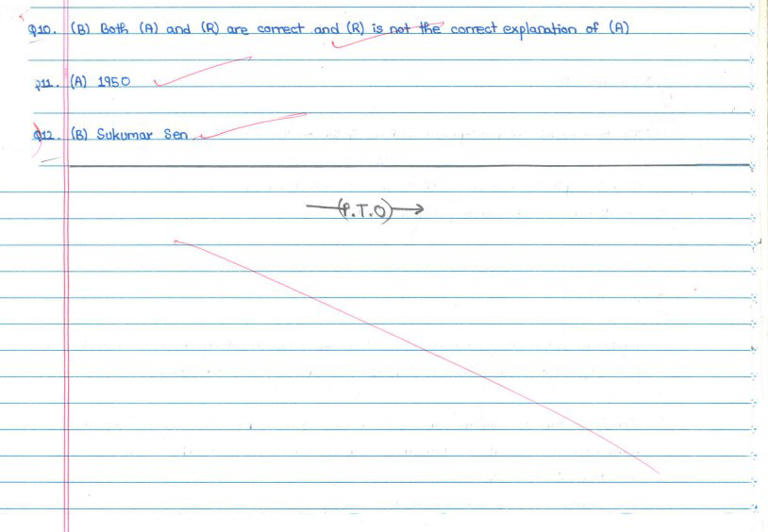 Q10. (B) Both (A) and (R) are correct and (R) is not the correct explanation of (A)
Q11. (A) 1950
Q12. (B) Sukumar Sen
(P.T.O)